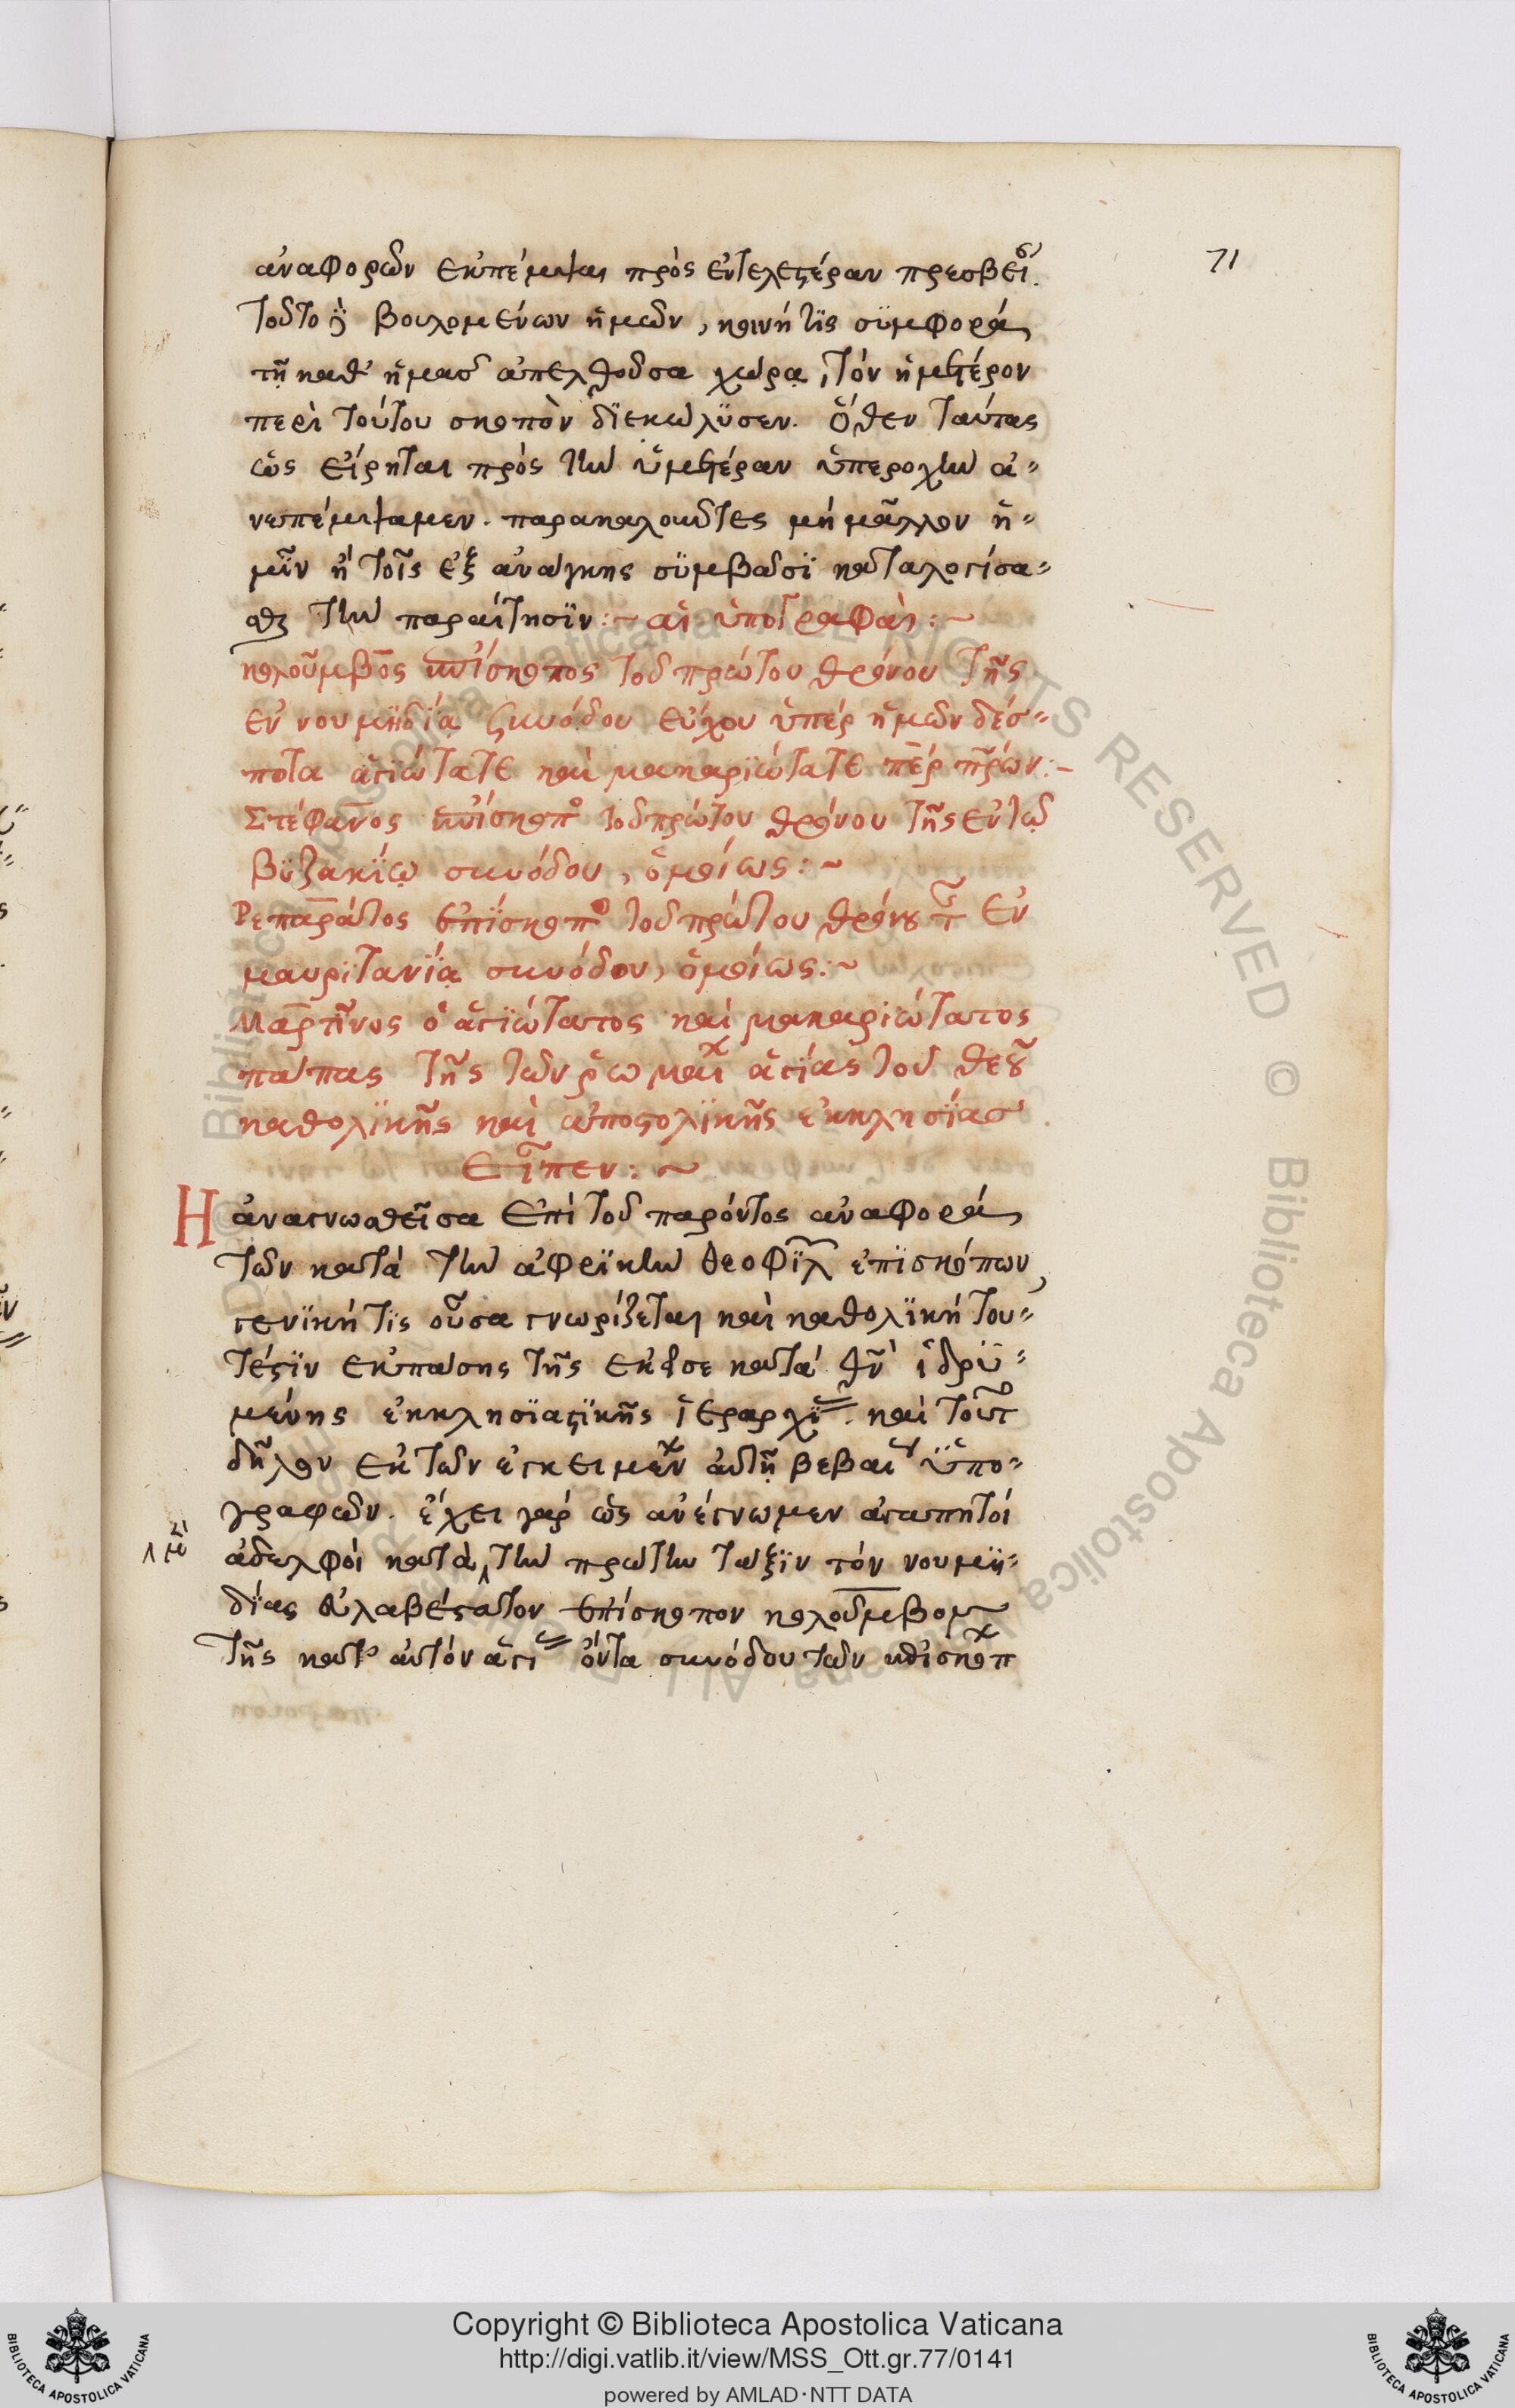 71
ἀναφορῶν ἐκπέμψαι πρὸς ἐντελεστέραν πρεσβεί.
τοῦτο βουλομένων ἡμῶν, κοινή τϊς σϋμφορά
τῇ καθ' ἡμᾶσ ἀπελθοῦσα χώρα, τὸν ἡμέτερον
περὶ τούτου σκοπὸν δϊεκώλϋσεν. Ὅθεν ταύτας
ὡς εἴρηται πρὸς τὴν ὑμετέραν ὑπεροχὴν ἀ-
νεπέμψαμεν. παρακαλοῦντες μὴ μᾶλλον ἡ-
μῖν ἢ τοῖς ἐξ ἀνάγκης σϋμβᾶσϊ καταλογίσα-
σθαι τὴν παραίτησϊν:~ αἱ ὑπογραφαὶ:~
κολοῦμβος ἐπίσκοπος τοῦ πρώτου θρόνου τῆς
ἐν νουμϊδία συνόδου εὔχου ὑπὲρ ἡμῶν δέσ-
ποτα ἁγϊώτατε καὶ μακαρϊώτατε περ πρων:~
Στέφανος ἐπίσκοπ τοῦ πρώτου θρόνου τῆς ἐν τῶ
Βϋζακίω συνόδου, ὁμοίως:~
Ρεπαράτος ἐπίσκοπ τοῦ πρώτου θρόνου τ ἐν
μαυρϊτανΐα συνόδου, ὁμοίως:~
Μαρτῖνος ὁ ἁγϊώτατος καὶ μακαριώτατος
πάπας τῆς τῶν ῥωμαί ἁγίας τοῦ θεοῦ
καθολϊκῆς καὶ ἀποστολϊκῆς ἐκκλησΐασ
εἶπεν:~
Η ἀναγνωσθεῖσα ἐπὶ τοῦ παρόντος ἀναφορά
τῶν κατὰ τὴν ἀφρϊκὴν θεοφϊλ ἐπϊσκόπων,
γενϊκή τϊς οὖσα γνωρίζεται καὶ καθολϊκή του-
τέστϊν ἐκ πάσης τῆς ἐκεῖσε κατὰ θν ἱδρϋ-
μένης ἐκκλησϊαστϊκῆς ἱεραρχϊ. καὶ τοῦτ
δῆλον ἐκ τῶν ἐγκειμέν αὐτῇ βεβαί ὑπο-
γραφῶν. ἔχει γὰρ ὡς ἀνέγνωμεν ἀγαπητοὶ
ἀδελφοὶ κατὰ τὴν πρώτην τάξϊν τὸν νουμϊ-
δίας εὐλαβέστατον ἐπίσκοπον κολοῦμβομ
τῆς κατ' αὐτὸν ἁγί ὄντα συνόδου τῶν ἐπισκόπ
Copyright © Biblioteca Apostolica Vaticana
http://digi.vatlib.it/view/MSS_Ott.gr.77/0141
powered by AMLAD·NTT DATA